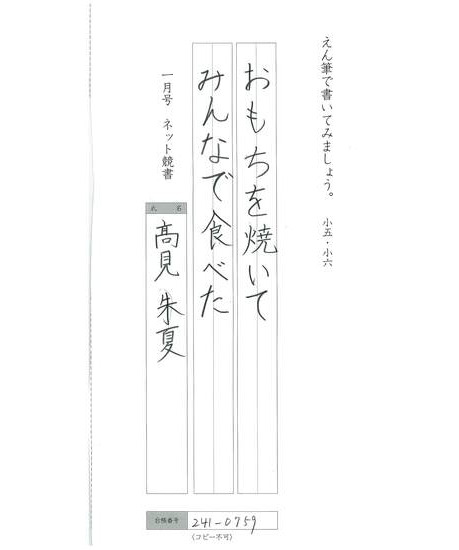 えん筆で書いてみましょう。 小五・小六
おもちを焼いて
みんなで食べた
一月号 ネット競書
氏 名
高見 朱夏
台帳番号 241-0759
(コピー不可)